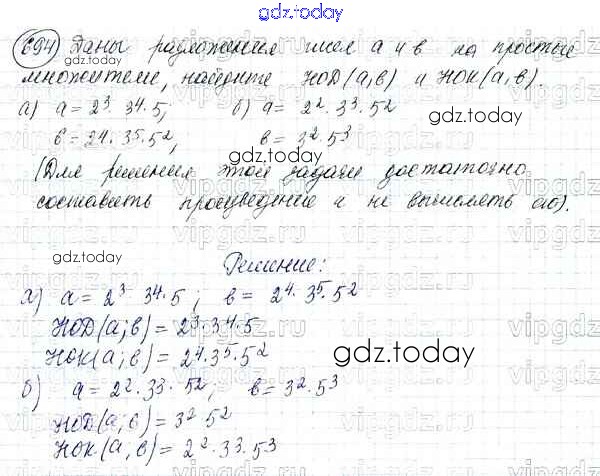 gdz.today
694) Даны разложения чисел a и b на простые
множители, найдите НОД(a, b) и НОК(a, b).
gdz.today
а) a = 2³ · 3⁴ · 5; б) a = 2² · 3³ · 5²
b = 2⁴ · 3⁵ · 5², b = 3² · 5³
gdz.today
(Для решения этой задачи достаточно
составить произведение и не вычислять его).
gdz.today
Решение:
а) a = 2³ · 3⁴ · 5; b = 2⁴ · 3⁵ · 5²
НОД(a; b) = 2³ · 3⁴ · 5
НОК(a; b) = 2⁴ · 3⁵ · 5²
gdz.today
б) a = 2² · 3³ · 5²; b = 3² · 5³
НОД(a; b) = 3² · 5²
НОК(a, b) = 2² · 3³ · 5³
gdz.today